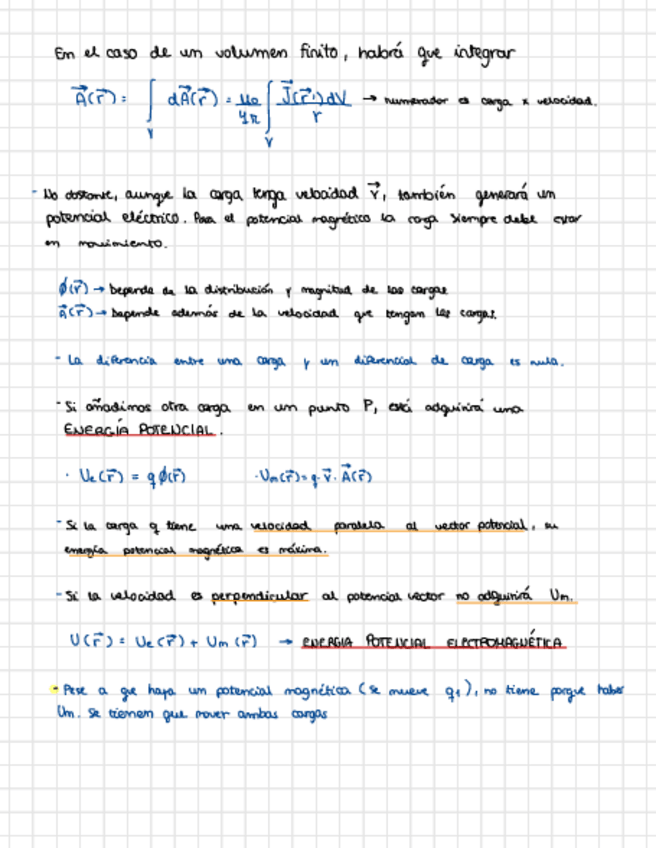 En el caso de un volumen finito, habrá que integrar
A⃗(r⃗) = ∫_V dA⃗(r⃗) = μ₀/4π ∫_V J⃗(r⃗')dV/r → numerador es carga x velocidad.
- No obstante, aunque la carga tenga velocidad v⃗, también generará un
potencial eléctrico. Para el potencial magnético la carga siempre debe estar
en movimiento.
ϕ(r⃗) → Depende de la distribución y magnitud de las cargas
A⃗(r⃗) → Depende además de la velocidad que tengan las cargas.
- La diferencia entre una carga y un diferencial de carga es nula.
- Si añadimos otra carga en un punto P, está adquirirá una
ENERGÍA POTENCIAL.
· Ue(r⃗) = qϕ(r⃗) · Um(r⃗) = q · v⃗ · A⃗(r⃗)
- Si la carga q tiene una velocidad paralela al vector potencial, su
energía potencial magnética es máxima.
- Si la velocidad es perpendicular al potencial vector no adquirirá Um.
U(r⃗) = Ue(r⃗) + Um(r⃗) → ENERGIA POTENCIAL ELECTROMAGNÉTICA
- Pese a que haya un potencial magnética (se mueve q₁), no tiene porque haber
Um. Se tienen que mover ambas cargas